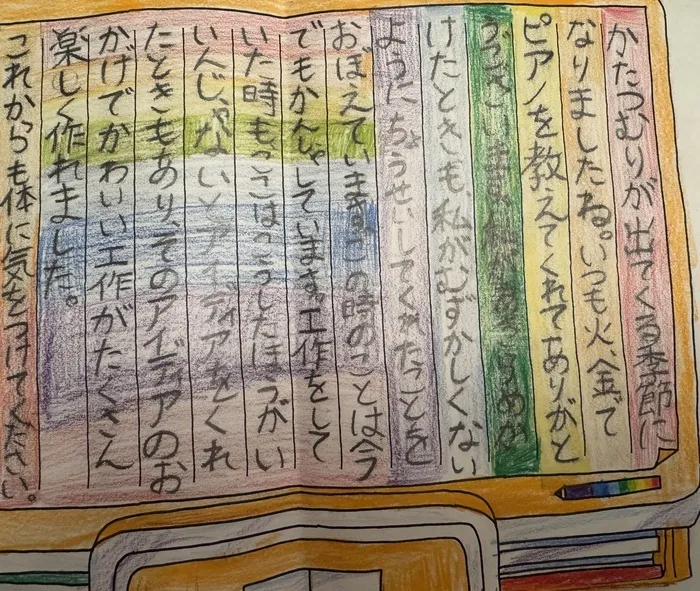 かたつむりが出てくる季節に
なりましたね。いつも火、金で
ピアノを教えてくれてありがと
うございます。私があきらめか
けたときも、私がむずかしくない
ようにちょうせいしてくれたことを
おぼえています。この時のことは今
でもかんしゃしています。工作をして
いた時も、ここはこうしたほうがい
いんじゃないとアイディアをくれ
たときもあり、そのアイディアのお
かげでかわいい工作がたくさん
楽しく作れました。
これからも体に気をつけてください。